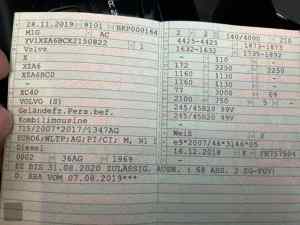 28.11.2019 8101 BKP000164
M1G AC
YV1XZA6BCK2150822 1
Volvo
X
XZA6
XZA6BCD
-
XC40
VOLVO (S)
Geländefz.Pers.bef.
Kombilimousine
715/2007*2017/1347AG
EURO6;WLTP;AG;PI/CI; M, N1
Diesel
0002 36AG 1969
2 2 140/4000 216
4425-4425 1873-1873
1632-1632
- 110 -
172 2250 -
1160 1130 -
1160 1130 -
77 3000 69
2100 750 5 -
245/45R20 99V
245/45R20 99V
-
Weiß 0
e9*2007/46*3146*05
14.12.2018 K
EZ BIS 31.08.2020 ZULÄSSIG, AUSN. ( §8 ABS. 2 EG-FGV)
D. KBA VOM 07.08.2019***